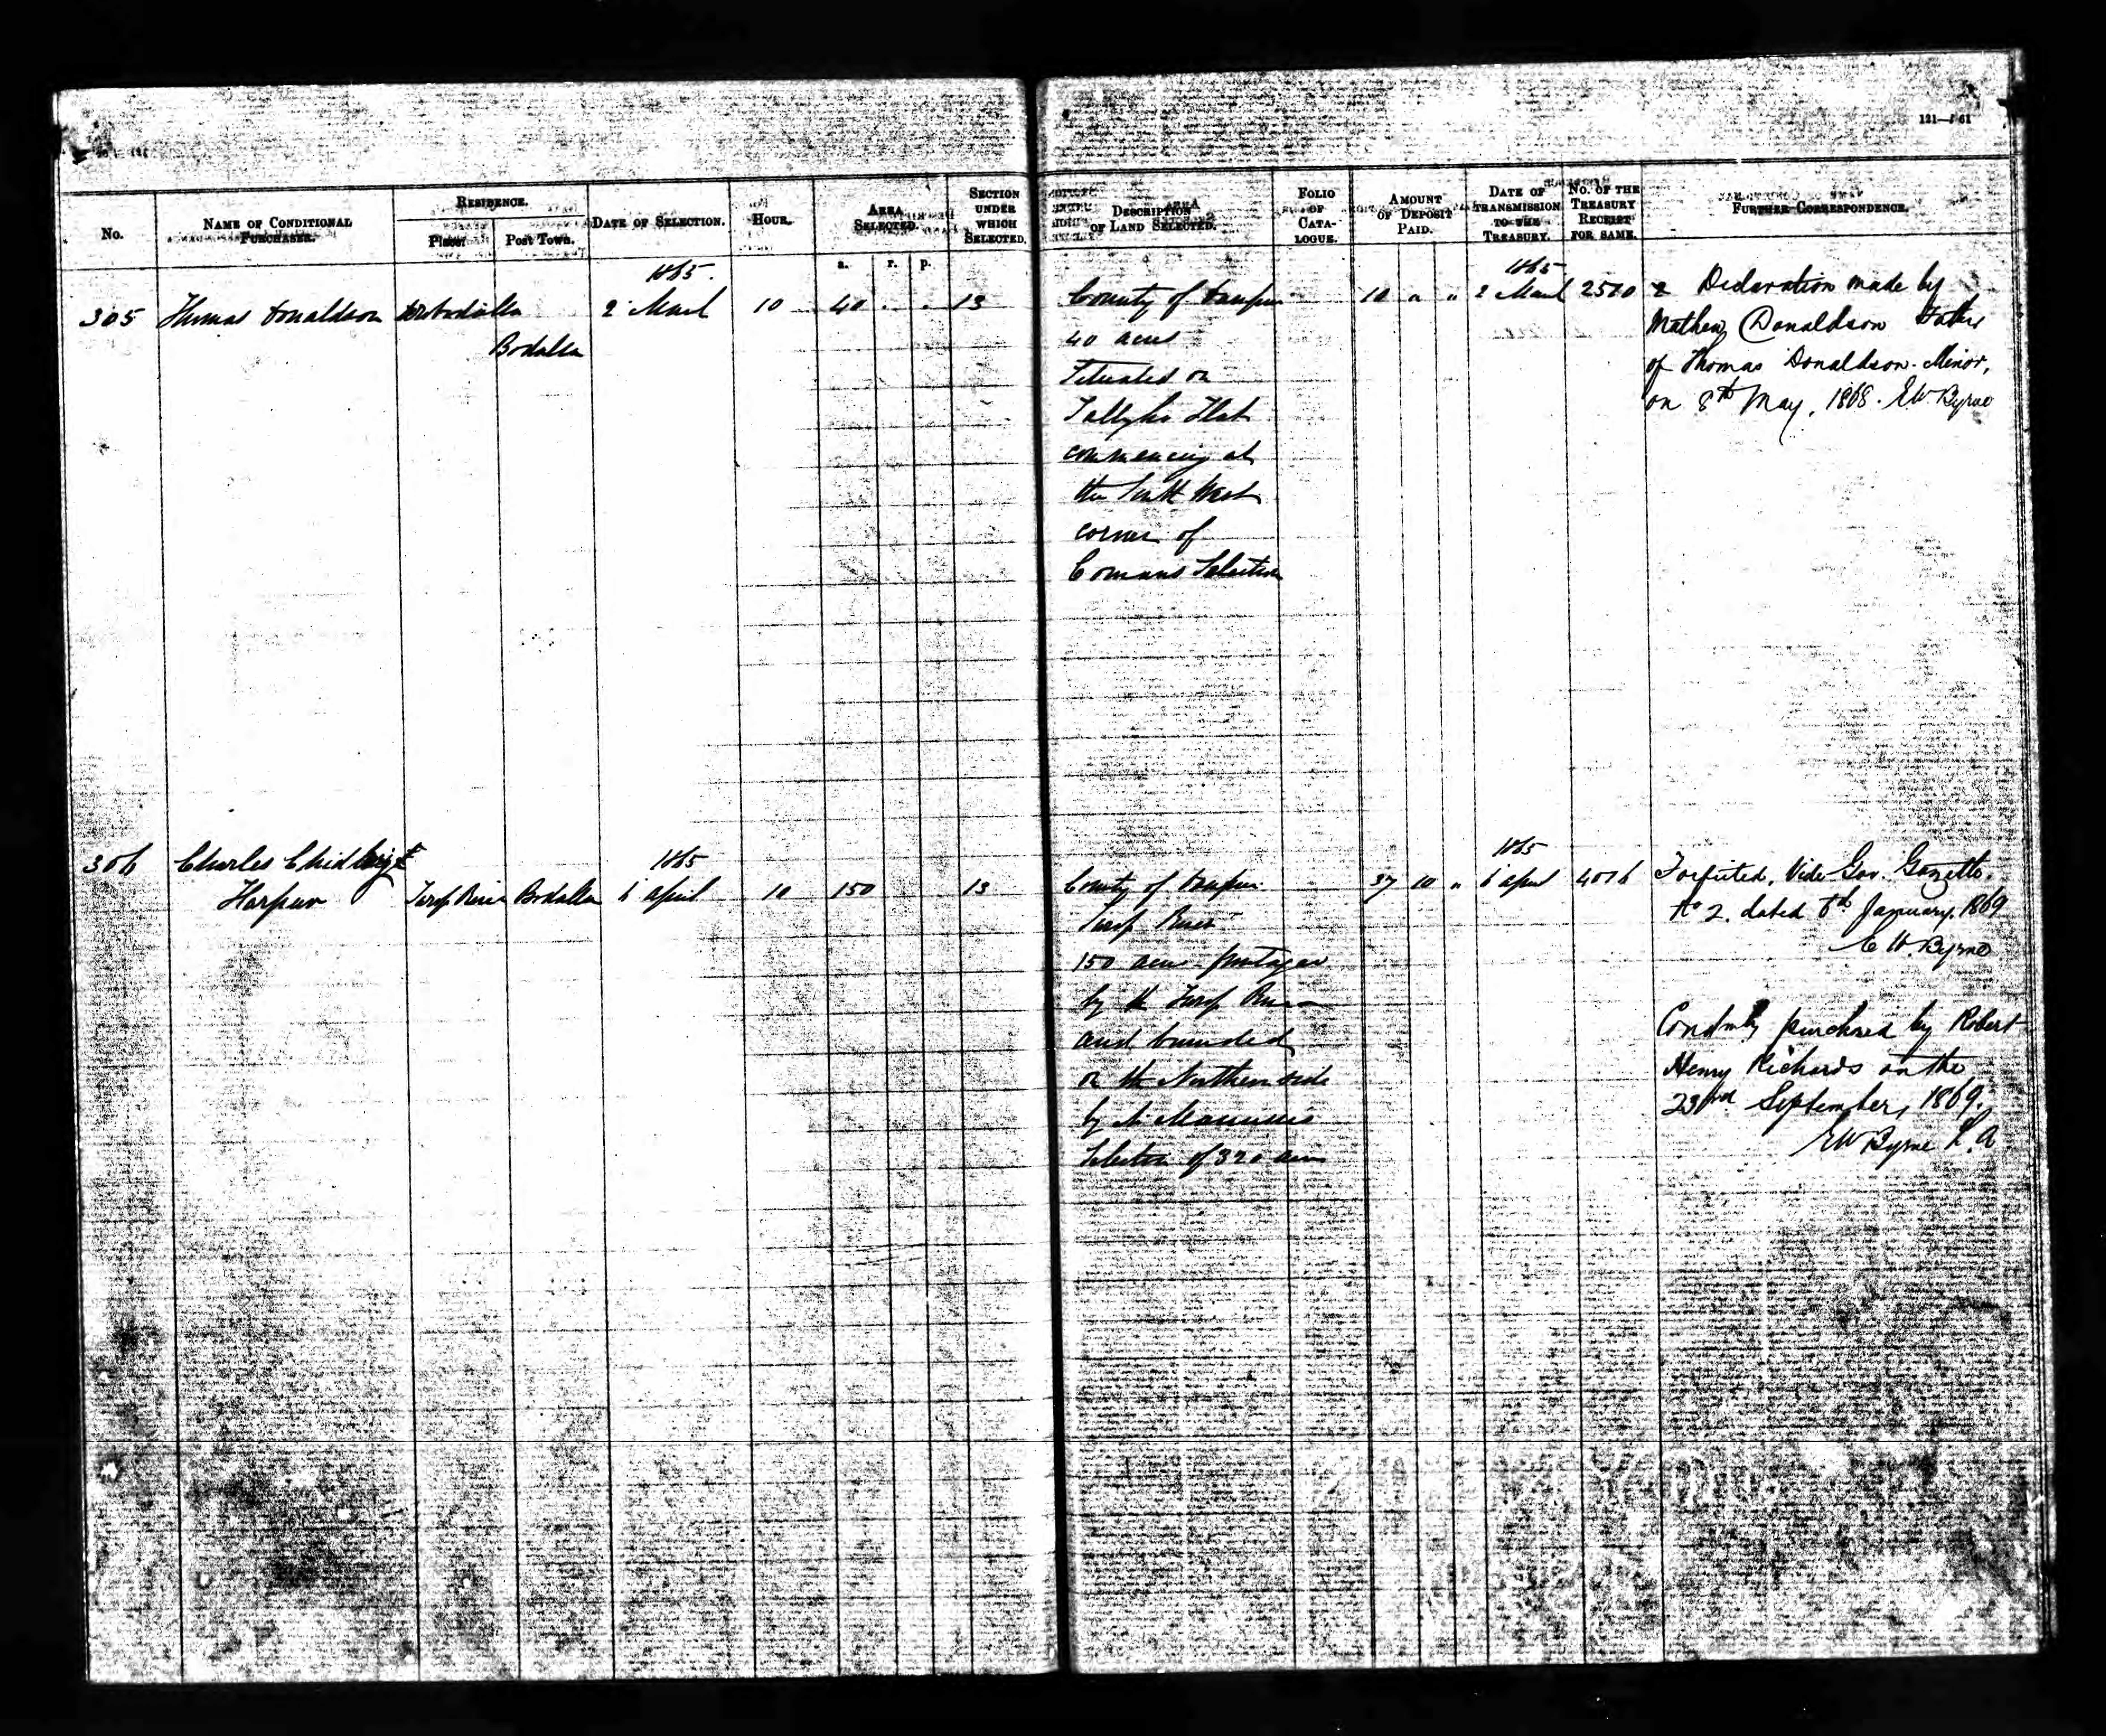 131—61
No.
NAME OF CONDITIONAL PURCHASER.
RESIDENCE.
Place.
Post Town.
DATE OF SELECTION.
HOUR.
AREA SELECTED.
a. r. p.
SECTION UNDER WHICH SELECTED.
DESCRIPTION OF LAND SELECTED.
FOLIO OF CATALOGUE.
AMOUNT OF DEPOSIT PAID.
DATE OF TRANSMISSION TO THE TREASURY.
NO. OF THE TREASURY RECEIPT FOR SAME.
FURTHER CORRESPONDENCE.
1865.
305 Thomas Donaldson
Bodalla
2 March 10 40 . . 13
County of Dampier
40 acres
Situated on
Tallyho Flat
commencing at
the South West
corner of
Comans Selection
10 " "
1865
2 March
Declaration made by
Mathew Donaldson Father
of Thomas Donaldson. Minor,
on 8th May, 1868. EW Byrne
306 Charles Chid
Harpur
Bodalla
1865
6 April 10 150 13
County of Dampier
150 acres frontage
by the
and bounded
on the Northern side
by
Selection of 320 acres
37 10 "
1865
6 April
Forfeited. Vide Gov. Gazette.
No 2. dated January, 1869
E W. Byrne
Condnly purchased by Robert
Henry Richards on the
23rd September, 1869.
EW Byrne L.A